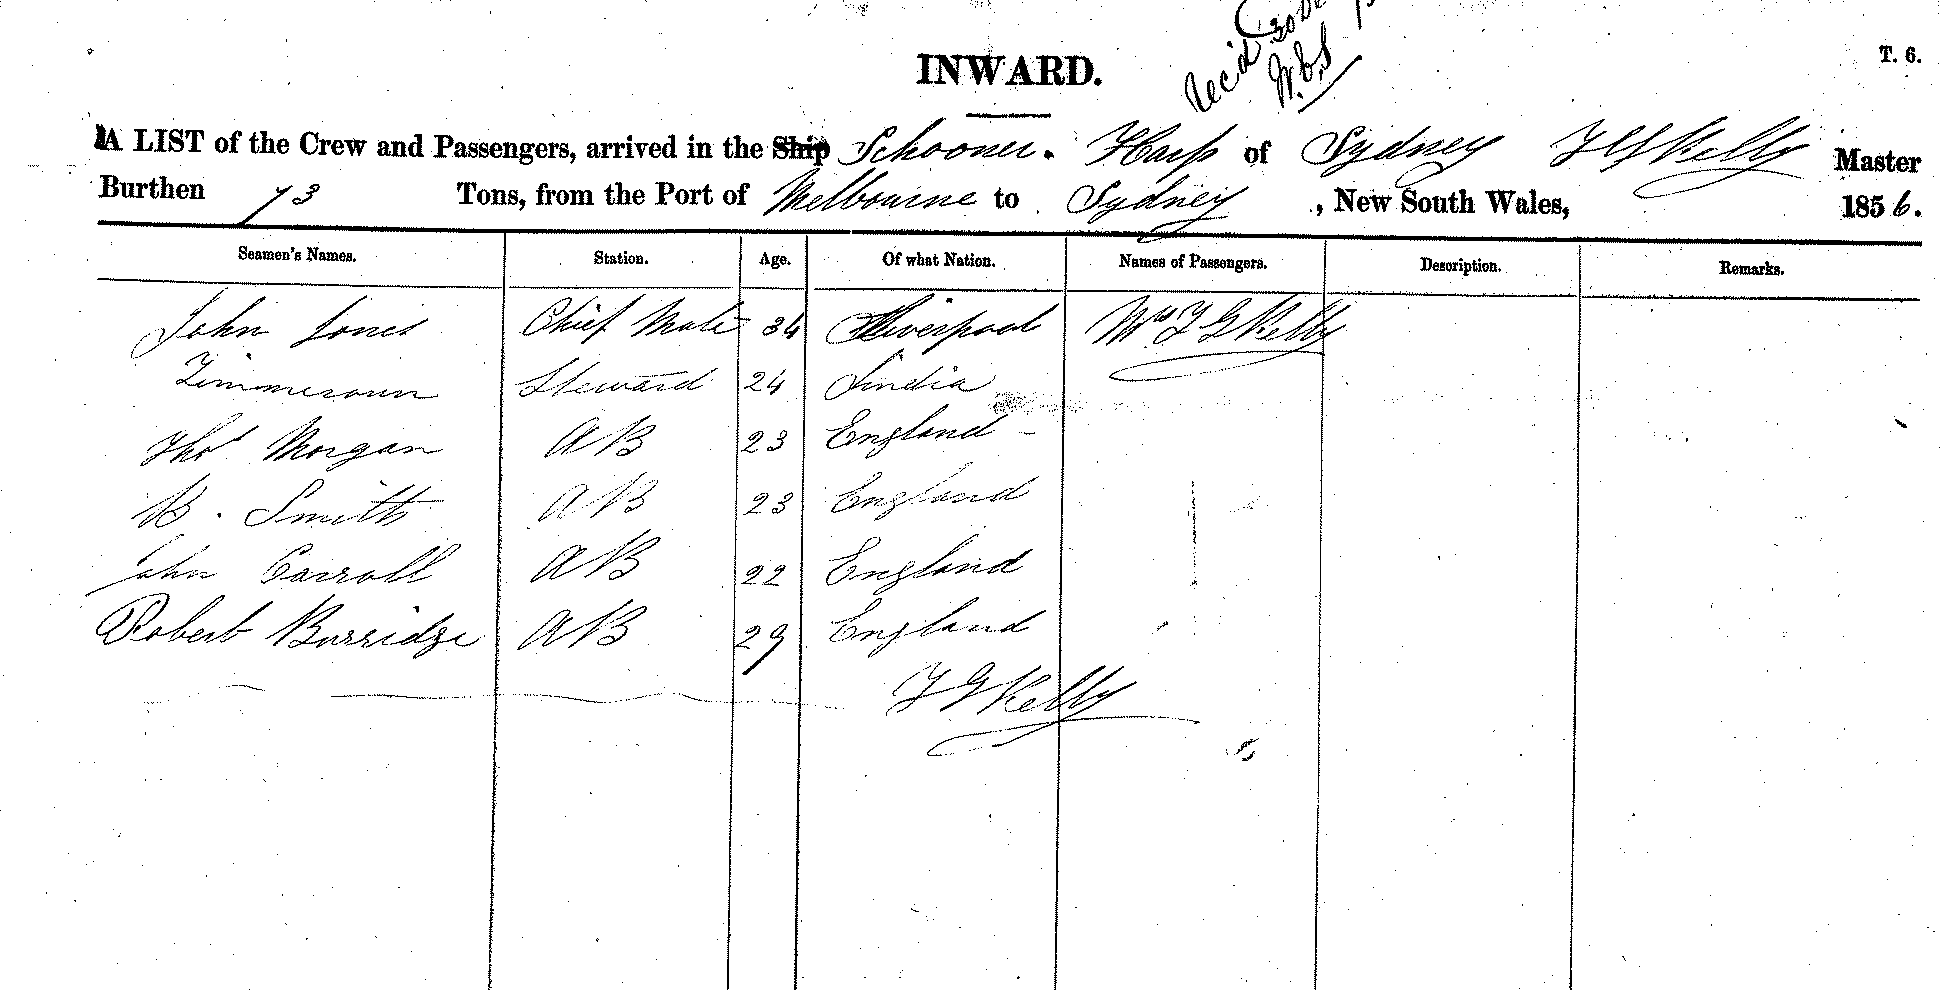 Rec'd 30 De
W.C.S
INWARD.
T. 6.
A LIST of the Crew and Passengers, arrived in the Ship Schooner. Harp of Sydney Kelly Master
Burthen 73 Tons, from the Port of Melbourne to Sydney, New South Wales, 1856.
Seamen's Names. Station. Age. Of what Nation. Names of Passengers. Description. Remarks.
John Jones Chief Mate 34 Liverpool Mrs F G Kelly
Steward 24 India
Thos Morgan AB 23 England
Smith AB 23 England
John Carroll AB 22 England
Robert Burridge AB 29 England
F G Kelly